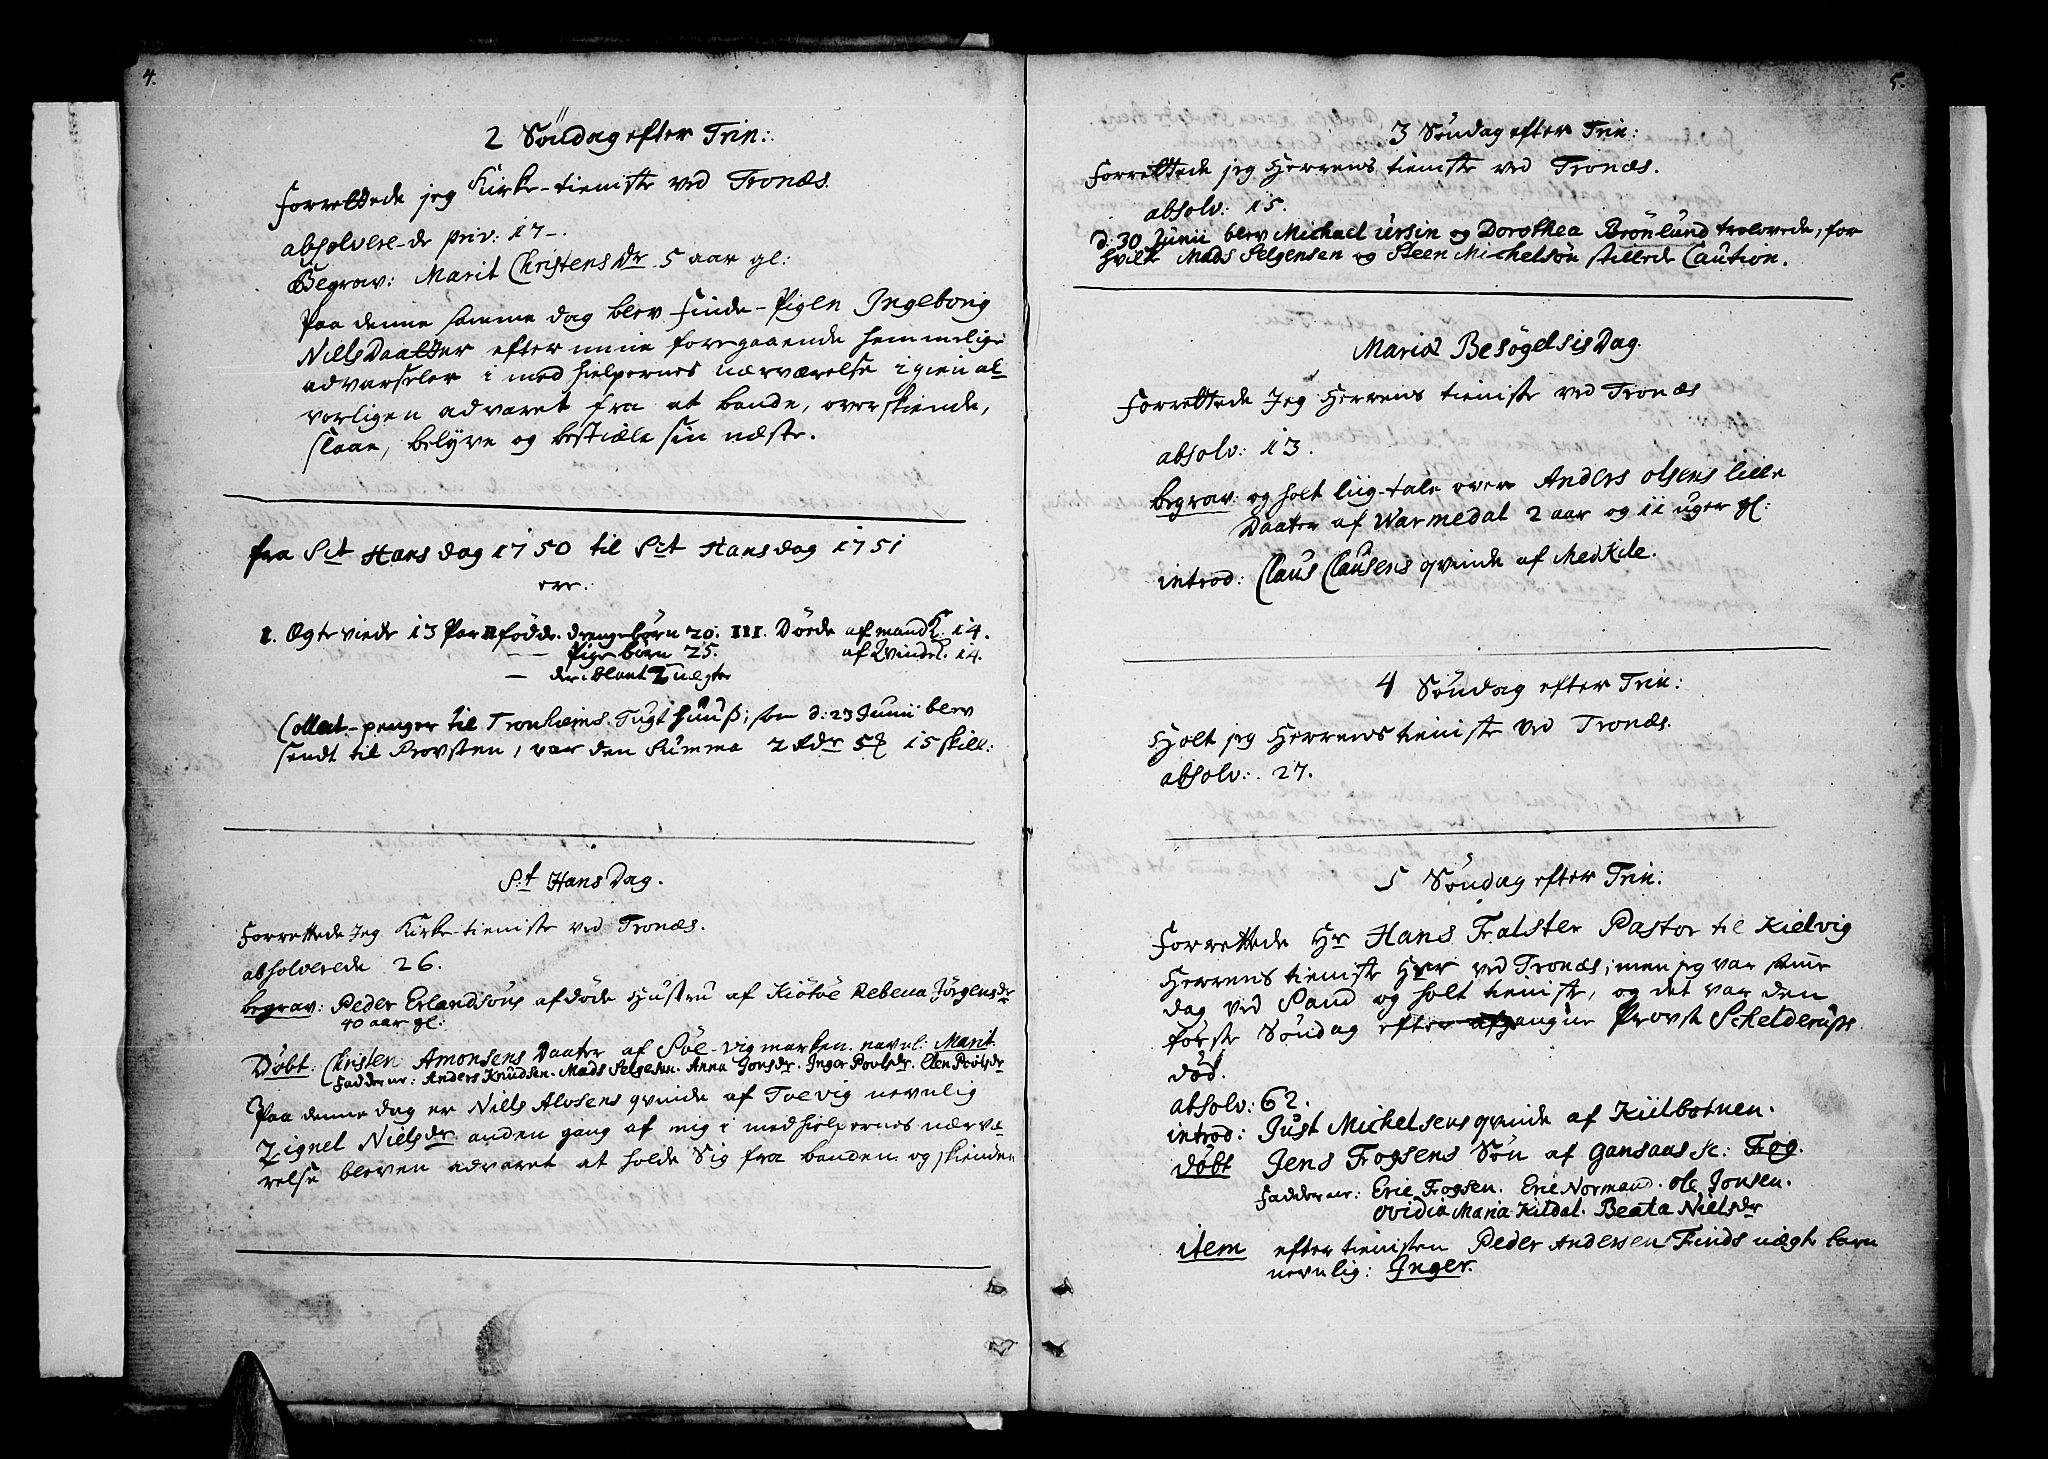 4.
2 Söndag efter Trin:
Forrettede jeg Kirke-tieniste ved Tronæs.
absolvere-de priv: 17-.
Begrav: Marit Christensdr. 5 aar gl:
Paa denne samme dag blev Finde-Pigen Ingeborig
NielsDaatter efter mine foregaaende hemmelige
advarseler i medhielpernes nærværelse igien al-
vorligen advaret fra at bande, overskiende,
slaae, belyve og bestiæle sin næste.
fra St Hans dag 1750 til St Hans dag 1751
ere.
I. Ægte viede 13 Par II födde. drengebörn 20. III. Döde af mandk. 14.
- - Pige börn 25. af Qvindek. 14.
- der iblant 2 uægte
Collect-penger til Tronheims Tugthuuß; som d: 23 Junii blev
sendt til Provsten, var den Summa 2 Rdr 5 15 skill:
St Hans Dag.
Forrettede Jeg Kirke-tieniste ved Tronæs.
absolverede 26.
begrav: Peder Erlandsöns afdöde Hustru af Kiötöe Rebena Jörgensdr
40 aar gl:
Döbt: Christen Amonsens Daater af Söe-vigmarken. navnl: Marit.
Fadderne: Anders Knudsen. Mads Selgesen. Anna Jonsdr. Inger Povlsdr. Elen Povlsdr
Paa denne dag er Niels Alvsens qvinde af Toevig nevnlig
Zignel Nielsdr. anden gang af mig i medhielpernes nærvæ-
relse bleven advaret at holde Sig fra banden og skienden
5.
3 Söndag efter Trin:
Forrettede jeg Herrens tieniste ved Tronæs.
absolv: 15.
d. 30 Junii blev Michael Ursin og Dorothea Brönlund trolovede, for
hvilke Mads Selgensen og Steen Michelsön stillede Caution.
Mariæ Besögelsis Dag.
Forrettede Jeg Herrens tieniste ved Tronæs
absolv: 13.
begrav: og holt liig-tale over Anders Olsens lille
Daater af Warmedal 2 aar og 11 uger gl:
introd: Claus Clausens qvinde af Medkile.
4 Söndag efter Trin:
Holt jeg Herrens tieniste ved Tronæs.
absolv: 27.
5 Söndag efter Trin:
Forrettede Hr Hans Falster Pastor til Kielvig
Herrens tieniste Her ved Tronæs; men jeg var samme
dag ved Sand og holt tieniste, og det var den
förste Söndag efter afgangne Provst Schelderups
död.
absolv: 62.
introd: Just Michelsens qvinde af Kiilbotnen.
döbt Jens Frogsens Sön af Gansaas sc: Frog.
Fadderne: Eric Frogsen. Eric Normand. Ole Jonsen.
Ovidia Maria Kildal. Beata Nielsdr
item efter tienisten Peder Andersen Finds uægte barn
nevnlig: Inger.